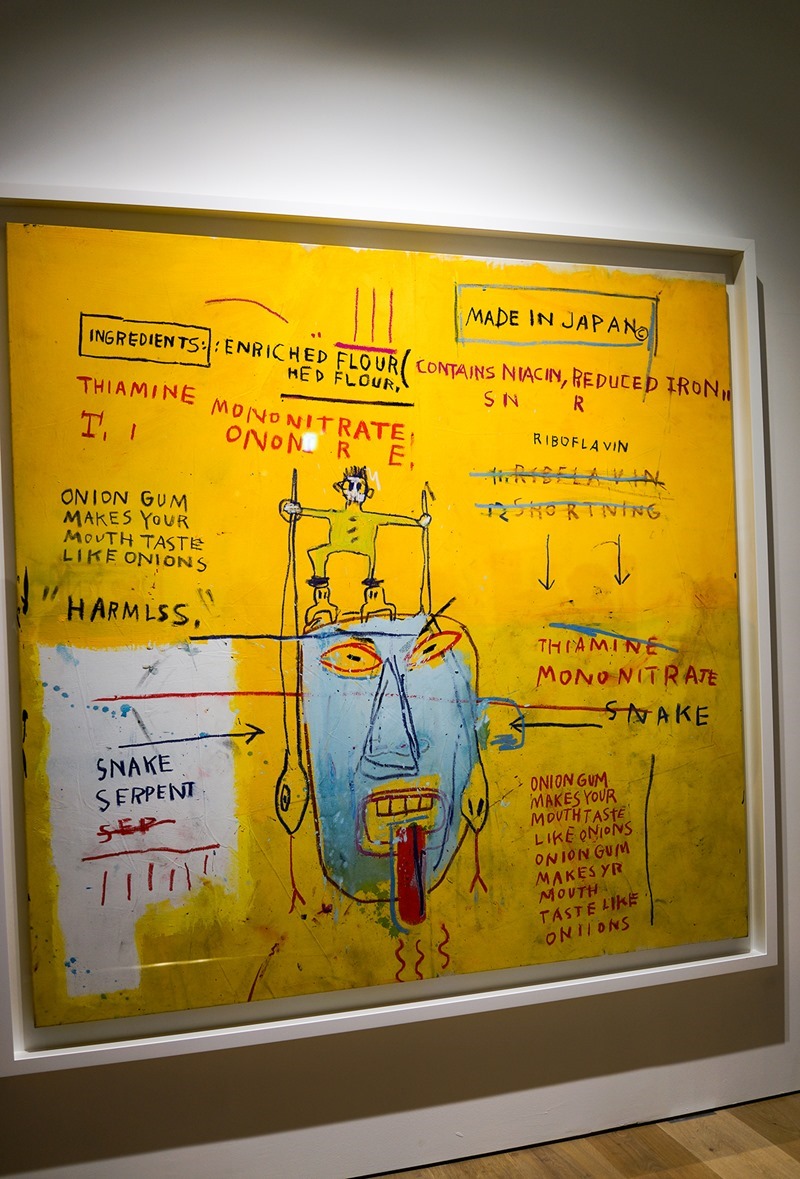 MADE IN JAPAN©
INGREDIENTS: : ENRICHED FLOUR(
HED FLOUR,
CONTAINS NIACIN, REDUCED IRON,,
SN R
THIAMINE MONONITRATE,
I. I ONON R E,
RIBOFLAVIN
11. RIBELAVIN
12 SHORTNING
ONION GUM
MAKES YOUR
MOUTH TASTE
LIKE ONIONS
"HARMLSS,"
THIAMINE
MONONITRATE
SNAKE
SNAKE
SERPENT
SEP
ONION GUM
MAKES YOUR
MOUTH TASTE
LIKE ONIONS
ONION GUM
MAKES YR
MOUTH
TASTE LIKE
ONIIONS